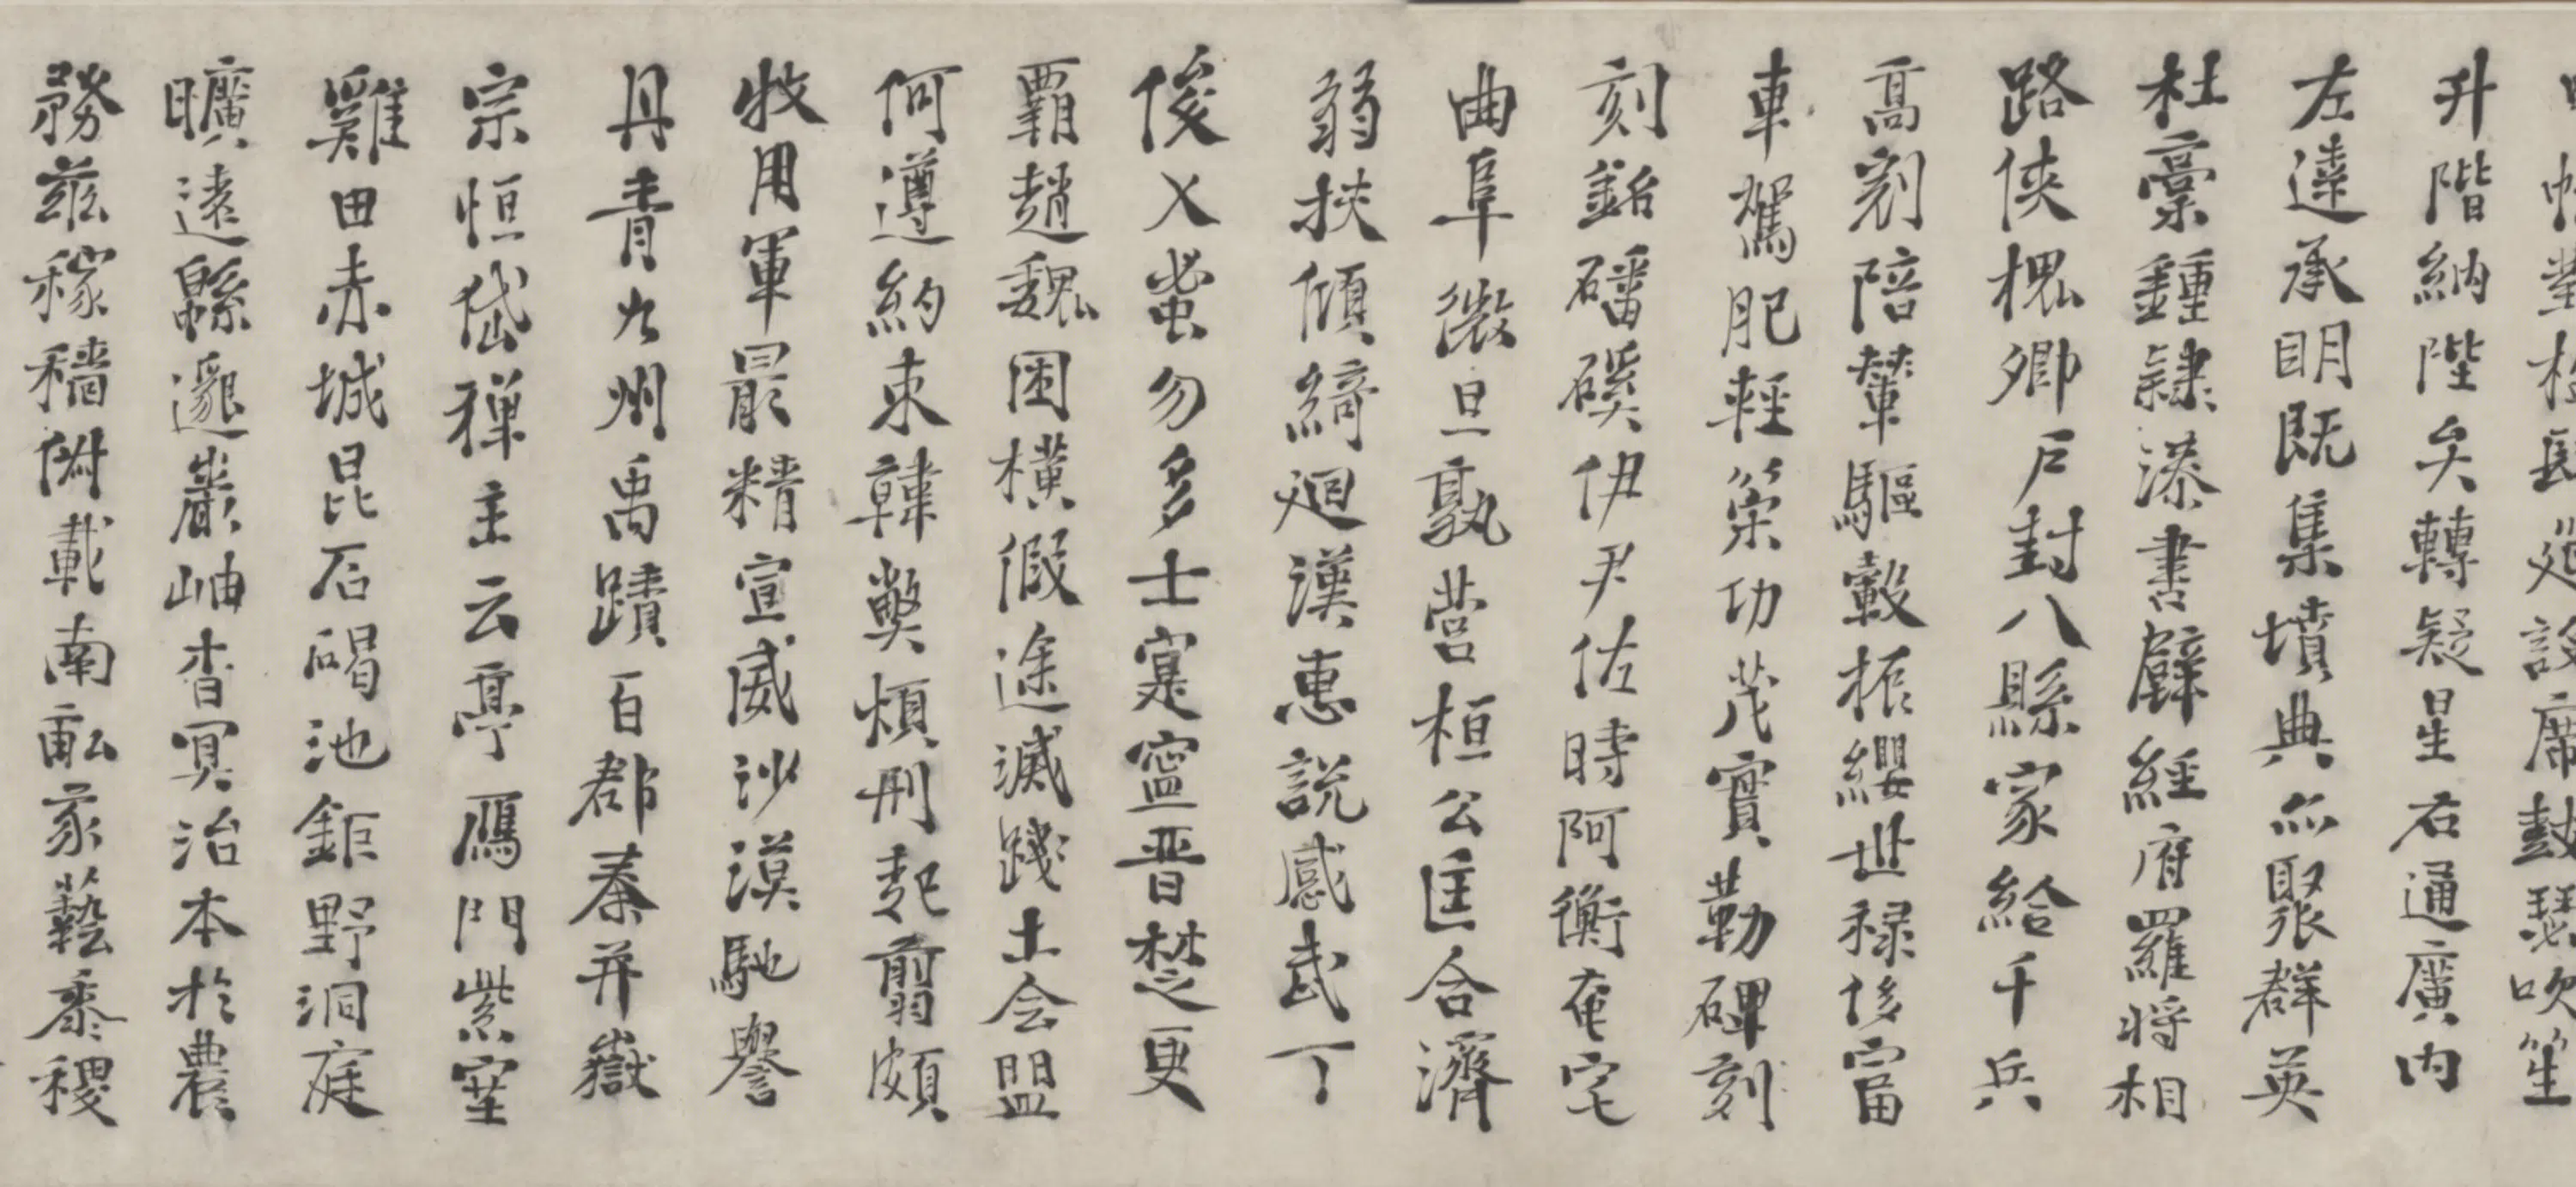 設席鼓瑟吹笙
升階納陛弁轉疑星右通廣內
左達承明既集墳典亦聚群英
杜稾鍾隸漆書壁經府羅將相
路俠槐卿戶封八縣家給千兵
高冠陪輦驅轂振纓世祿侈富
車駕肥輕策功茂實勒碑刻
刻銘磻磎伊尹佐時阿衡奄宅
曲阜微旦孰營桓公匡合濟
弱扶傾綺迴漢惠說感武丁
俊乂密勿多士寔寧晉楚更
霸趙魏困橫假途滅踐土会盟
何遵約束韓弊煩刑起翦頗
牧用軍最精宣威沙漠馳譽
丹青九州禹蹟百郡秦并嶽
宗恒岱禪主云亭鴈門紫塞
雞田赤城昆石碣池鉅野洞庭
曠遠緜邈巖岫杳冥治本於農
務茲稼穡俶載南畝我藝黍稷